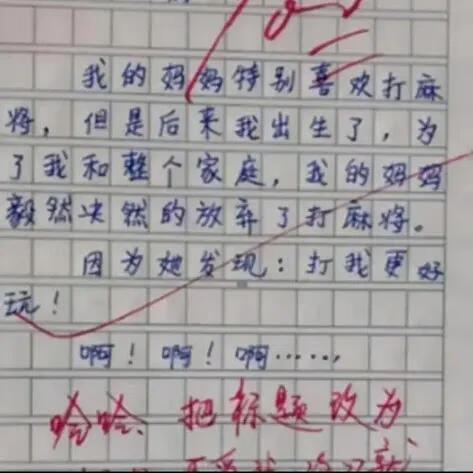 我的妈妈特别喜欢打麻
将，但是后来我出生了，为
了我和整个家庭，我的妈妈
毅然决然的放弃了打麻将。
因为她发现：打我更好
玩！
啊！啊！啊……，
哈哈、把标题改为